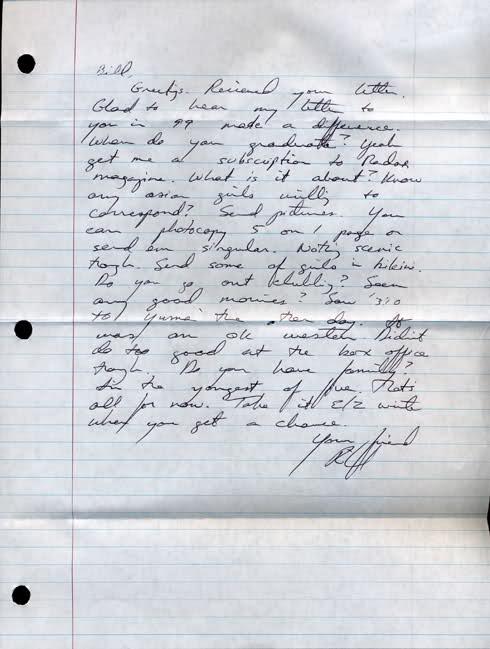 Bill,
Greetings. Recieved your letter.
Glad to hear my letter to
you in 99 made a difference.
When do you graduate? Yeah
get me a subscription to Radar
magazine. What is it about? Know
any asian girls willing to
correspond? Send pictures. You
can photocopy 5 on 1 page or
send em singular. Nothing scenic
though. Send some of girls in bikin.
Do you go out clubbing? Seen
any good movies? Saw '3:10
to Yuma' the other day. It
was an ok western. Didnt
do too good at the box office
though. Do you have family?
Im the youngest of five. Thats
all for now. Take it E/Z write
when you get a chance.
Your friend